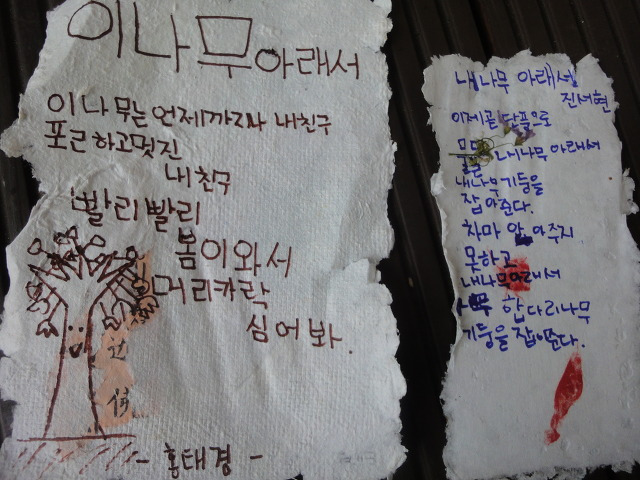 이나무아래서
이나무는언제까지나 내친구
포근하고멋진
내친구
빨리빨리
봄이와서
머리카락
심어봐.
- 홍태경 -
내나무 아래서
진서현
이제곧 단풍으로
내나무 아래서
내나무기둥을
잡아준다.
차마 안아주지
못하고
내나무아래서
한다리나무
기둥을잡아준다.